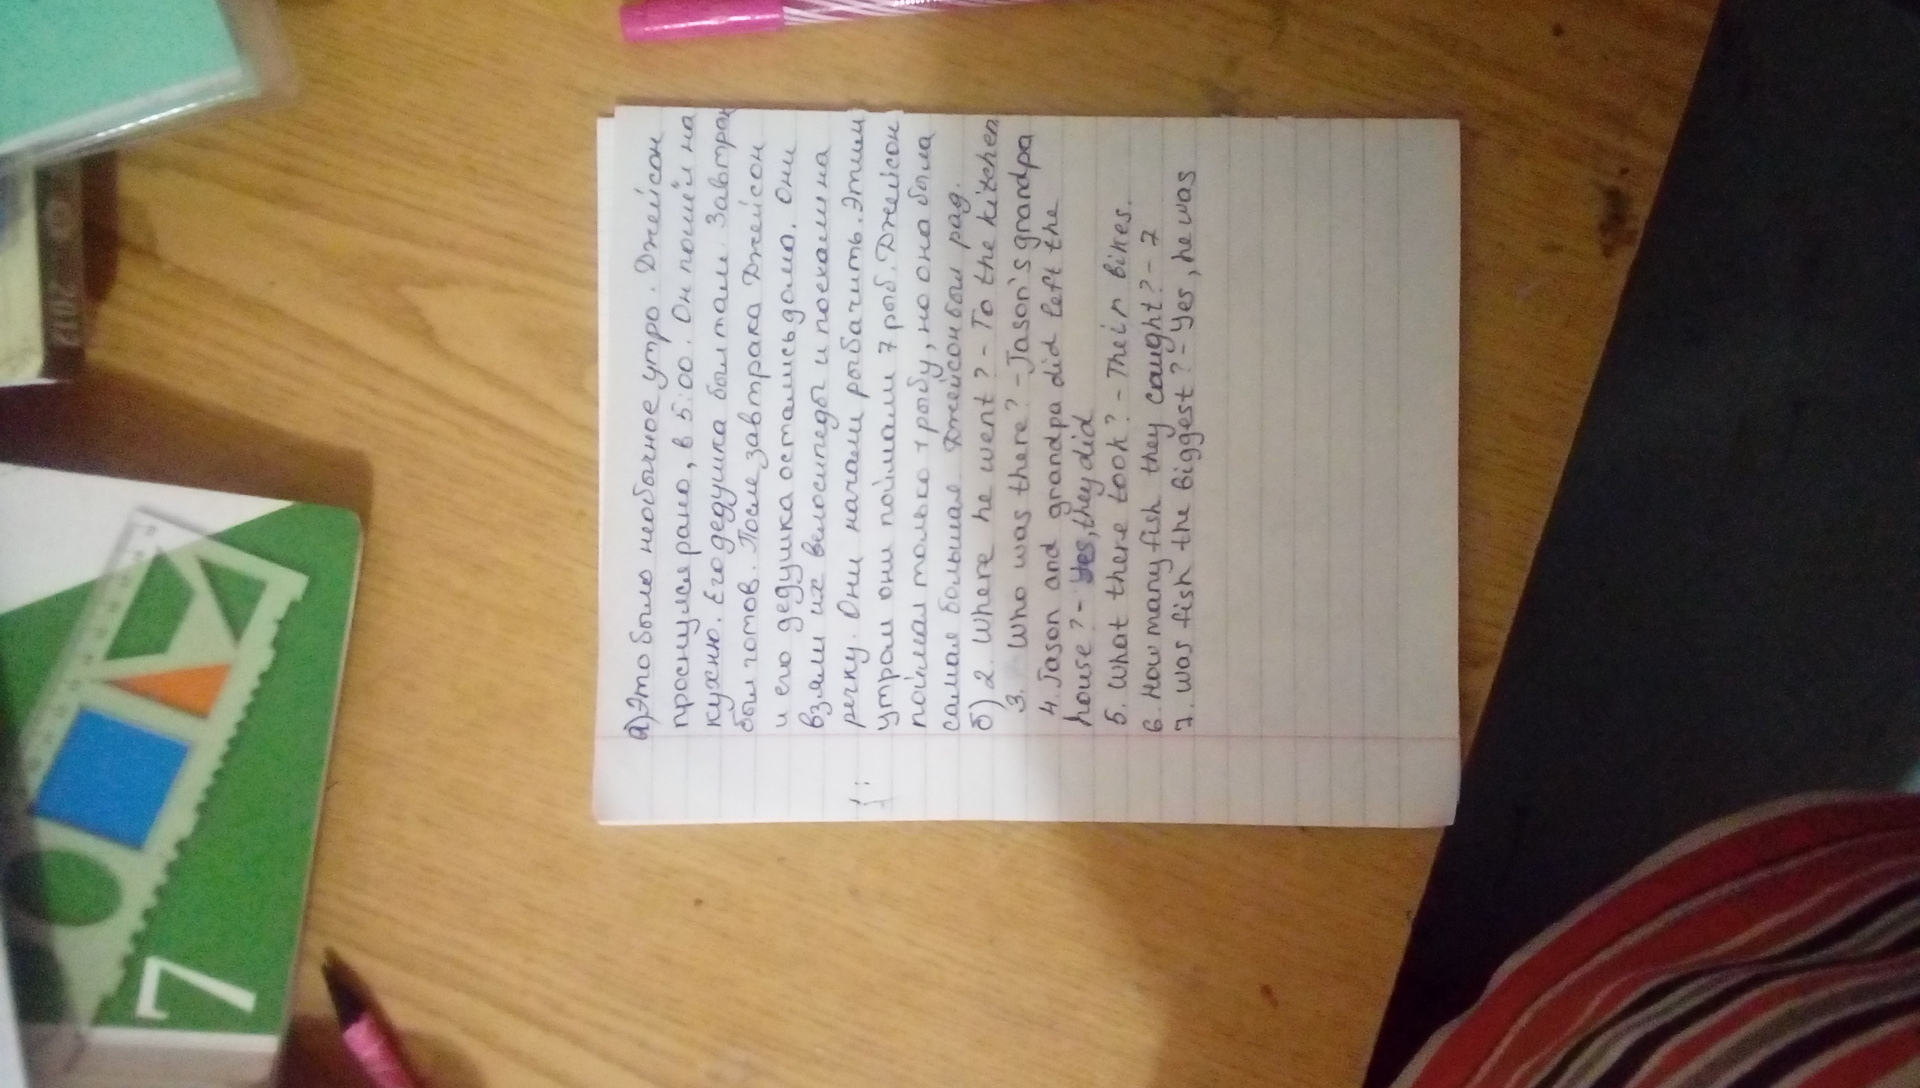 а) Это было необычное утро. Джейсон
проснулся рано, в 5:00. Он пошёл на
кухню. Его дедушка был там. Завтрак
был готов. После завтрака Джейсон
и его дедушка остались дома. Они
взяли их велосипеды и поехали на
речку. Они начали рыбачить. Этим
утром они поймали 7 рыб. Джейсон
поймал только 1 рыбу, но она была
самая большая. Джейсон был рад.
б) 2. Where he went? - To the kitchen
3. Who was there? - Jason's grandpa
4. Jason and grandpa did left the
house? - Yes, they did
5. What there took? - Their bikes.
6. How many fish they caught? - 7
7. Was fish the biggest? - Yes, he was
7
2012